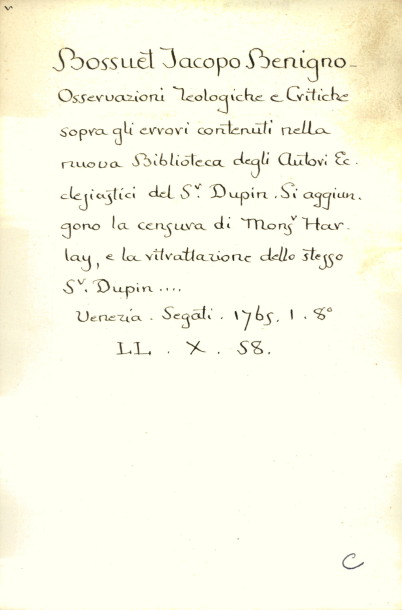 Bossuet Jacopo Benigno -
Osservazioni Teologiche e Critiche
sopra gli errori contenuti nella
nuova Biblioteca degli Autori Ec-
clesiastici del Sr. Dupin. Si aggiun-
gono la censura di Monsr Har-
lay, e la ritrattazione dello stesso
Sr. Dupin ....
Venezia. Segati. 1765. 1. 8°
LL. X. 58.
C